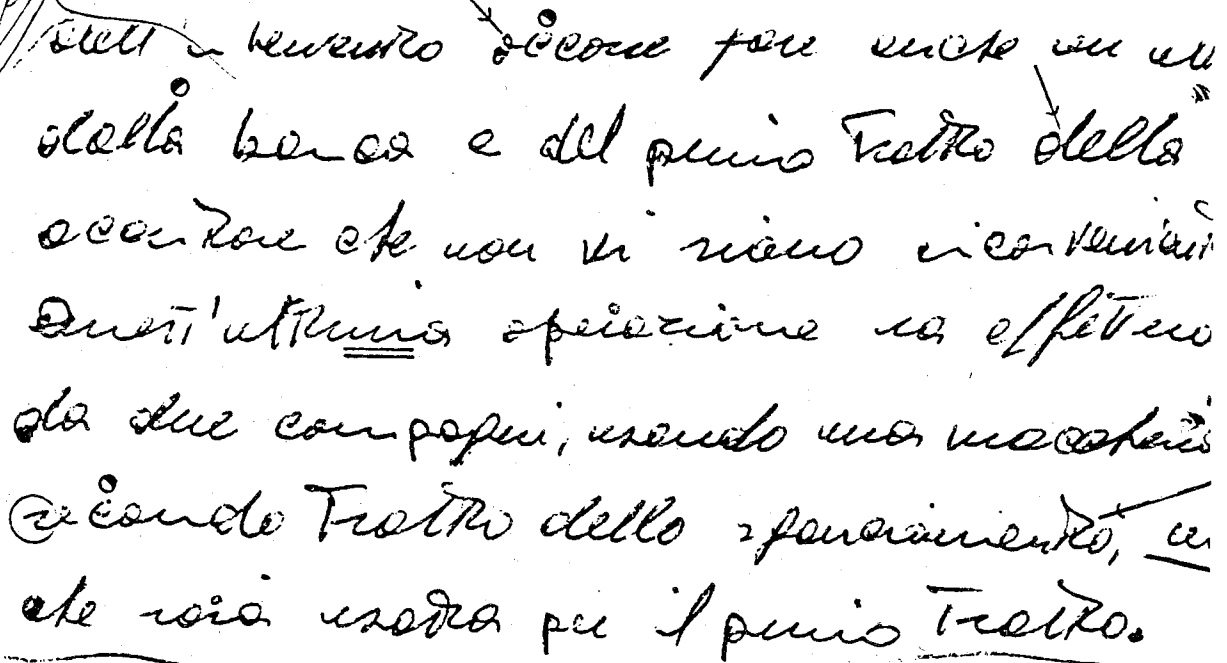 dell'intervento occorre fare anche un
della banca e del primo tratto della
accertare che non vi siano inconvenient
Quest'ultima operazione va effettua
da due compagni, usando una macchina
secondo tratto dello sganciamento,
che sarà usata per il primo tratto.